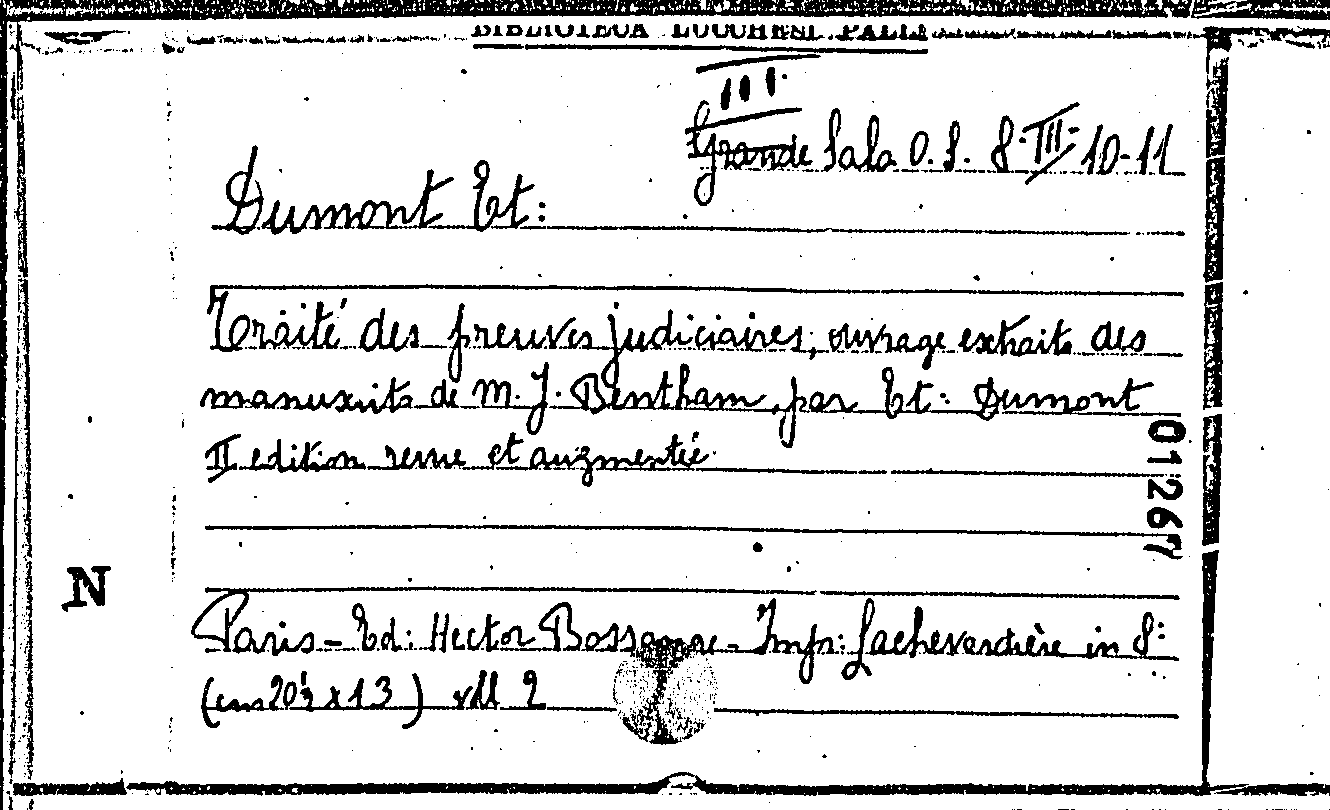 BIBLIOTECA LUCCHESI PALLI
III
Grande Sala O. S. 8. III. 10-11
Dumont Et:
Traité des preuves judiciaires, ouvrage extraits des
manuscrits de M. J. Bentham, par Et: Dumont
II edition revue et augmentée.
01267
N
Paris - Ed: Hector Bossange - Impr: Lachevardière in 8:
(cm 20½ x 13) vll 2